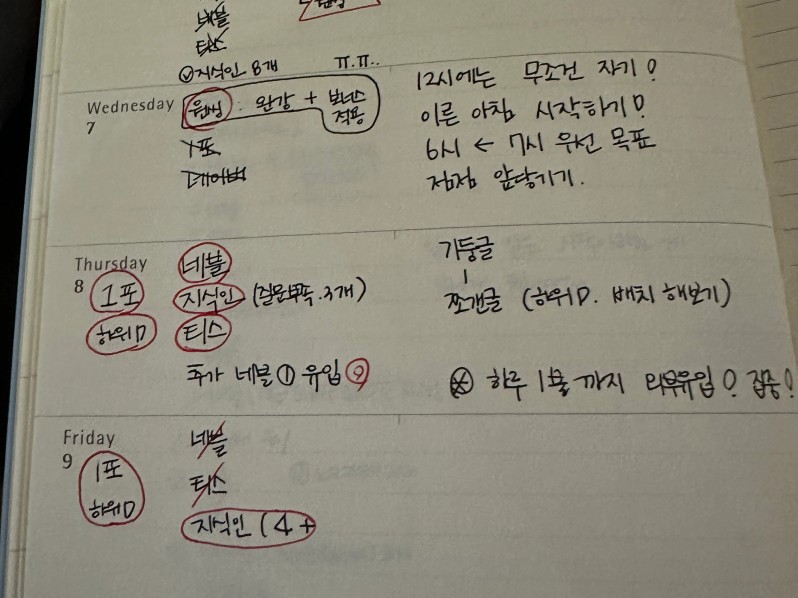 네블
티스
지식인 8개 ㅠ.ㅠ..
Wednesday
7
완강 + 보너스
적용
1포
12시에는 무조건 자기!
이른 아침 시작하기!
6시 ← 7시 우선 목표
점점 앞당기기.
Thursday
8
1포
하위D
네블
지식인 (질문부족.3개)
티스
추가 네블 ① 유입 ⓞ
기둥글
쪼갠글 (하위D. 배치 해보기)
하루 1불까지 외부유입! 집중!
Friday
9
1포
하위D
네블
티스
지식인 (4+